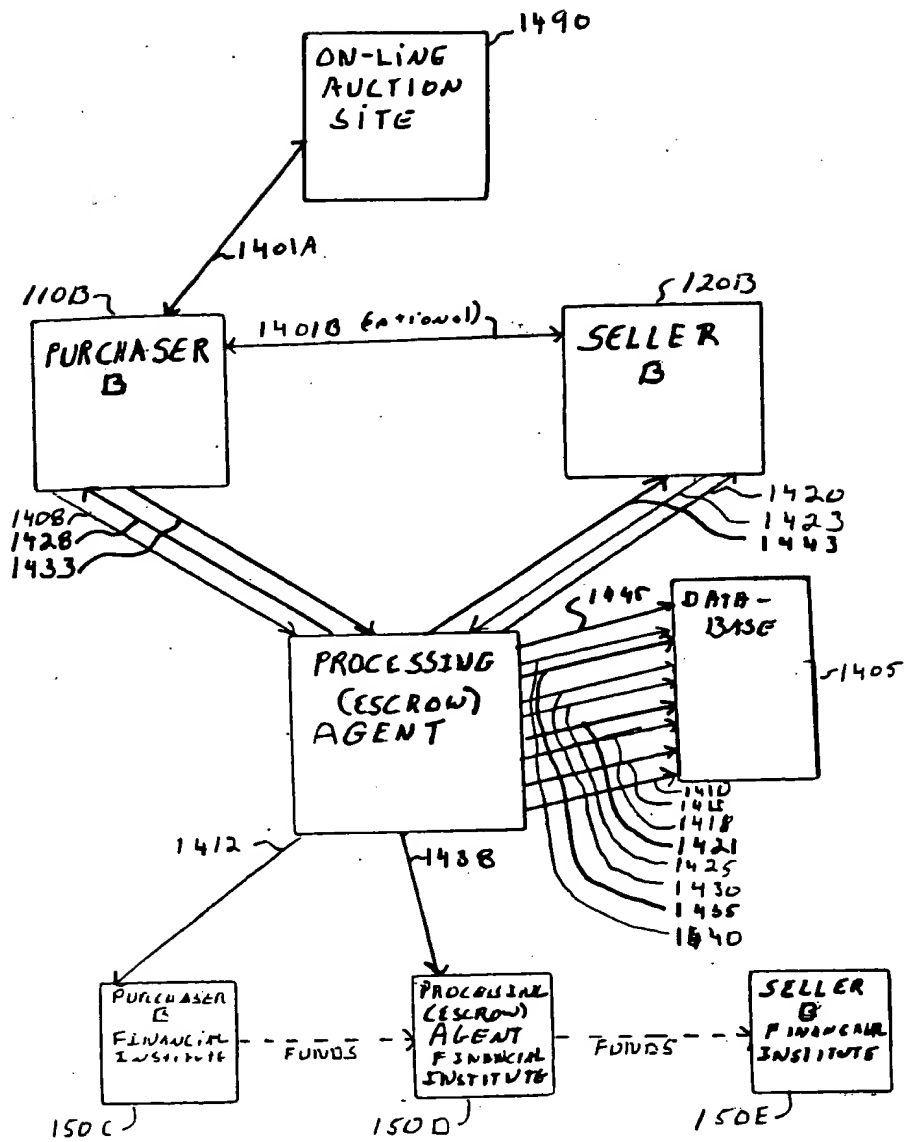 1490
ON-LINE
AUCTION
SITE
1401A
110B
120B
PURCHASER
B
1401B (optional)
SELLER
B
1408
1428
1433
1420
1423
1443
1445
DATA-
BASE
1405
PROCESSING
(ESCROW)
AGENT
1410
1415
1418
1421
1425
1430
1435
1440
1412
1438
PURCHASER
B
FINANCIAL
INSTITUTE
FUNDS
PROCESSING
(ESCROW)
AGENT
FINANCIAL
INSTITUTE
FUNDS
SELLER
B
FINANCIAL
INSTITUTE
150C
150D
150E